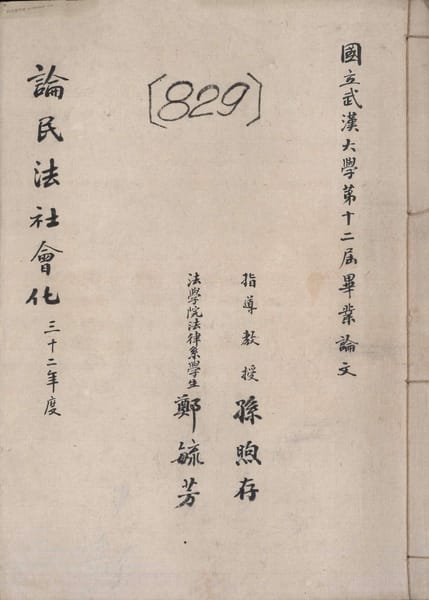 國立武漢大學第十二屆畢業論文
[829]
指導教授 孫煦存
法學院法律系學生 鄭毓芳
論民法社會化 三十二年度